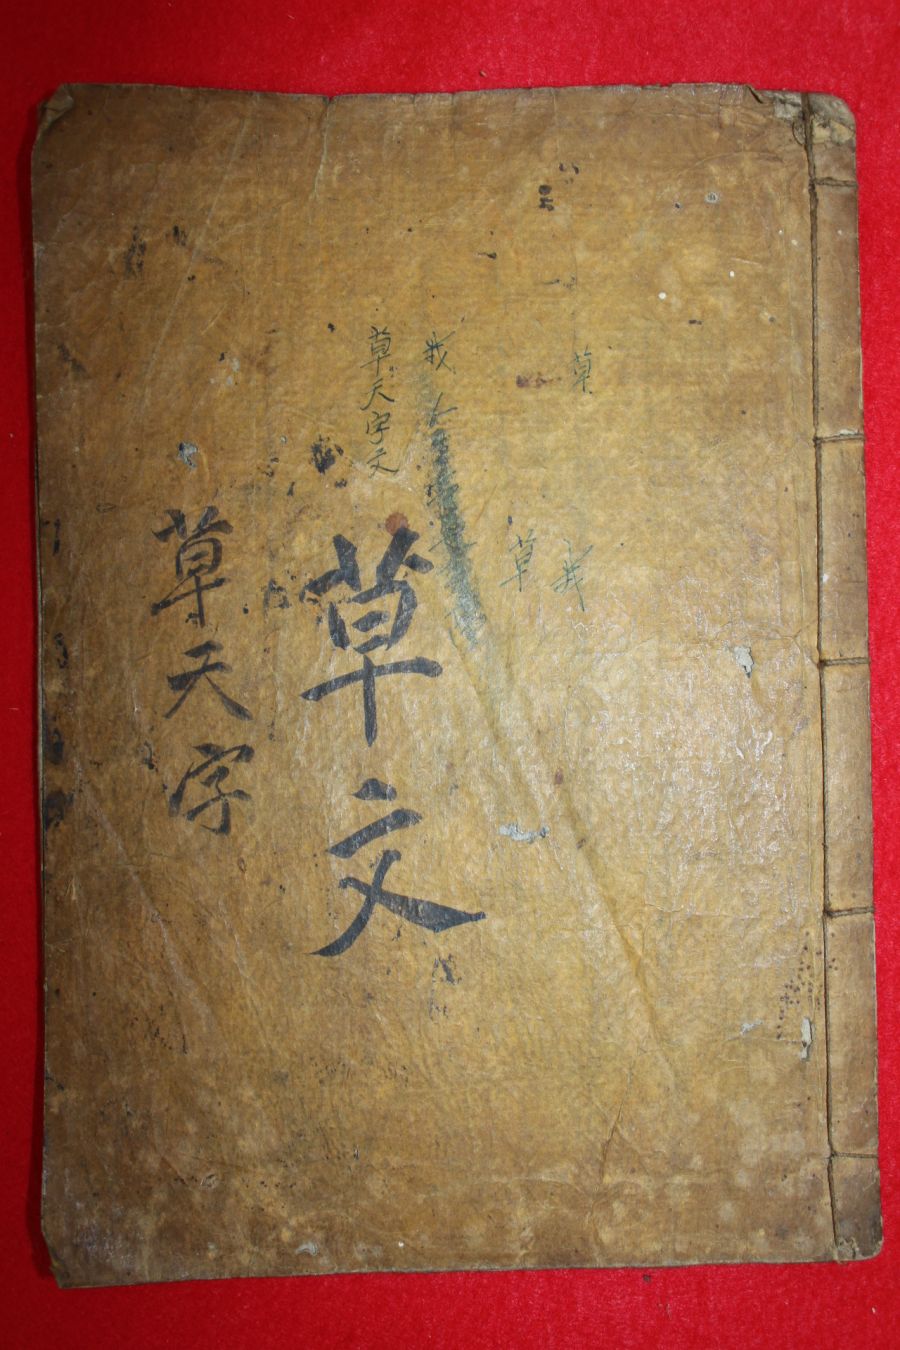 草
我
草天字文
草
我
草文
草天字